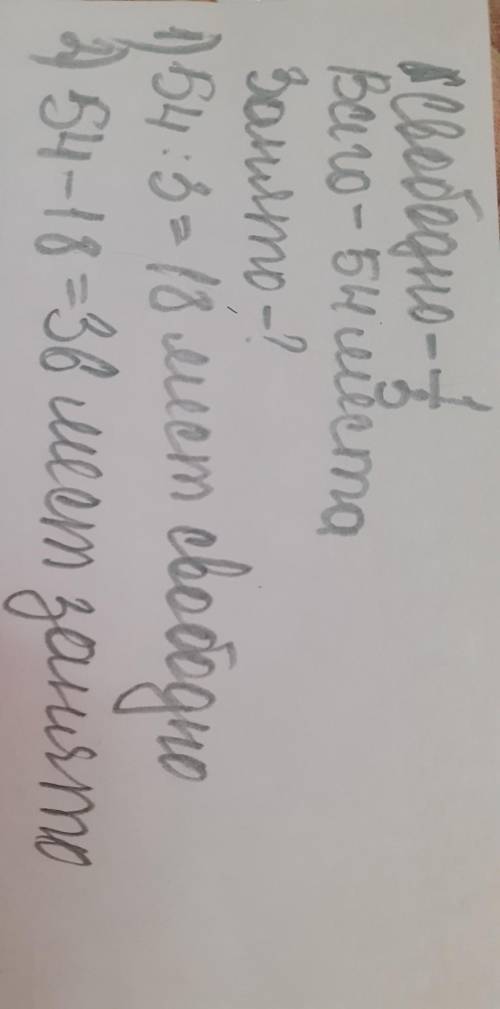 Свободно - 1/3
Всего - 54 места
Занято - ?
1) 54 : 3 = 18 мест свободно
2) 54 - 18 = 36 мест занято